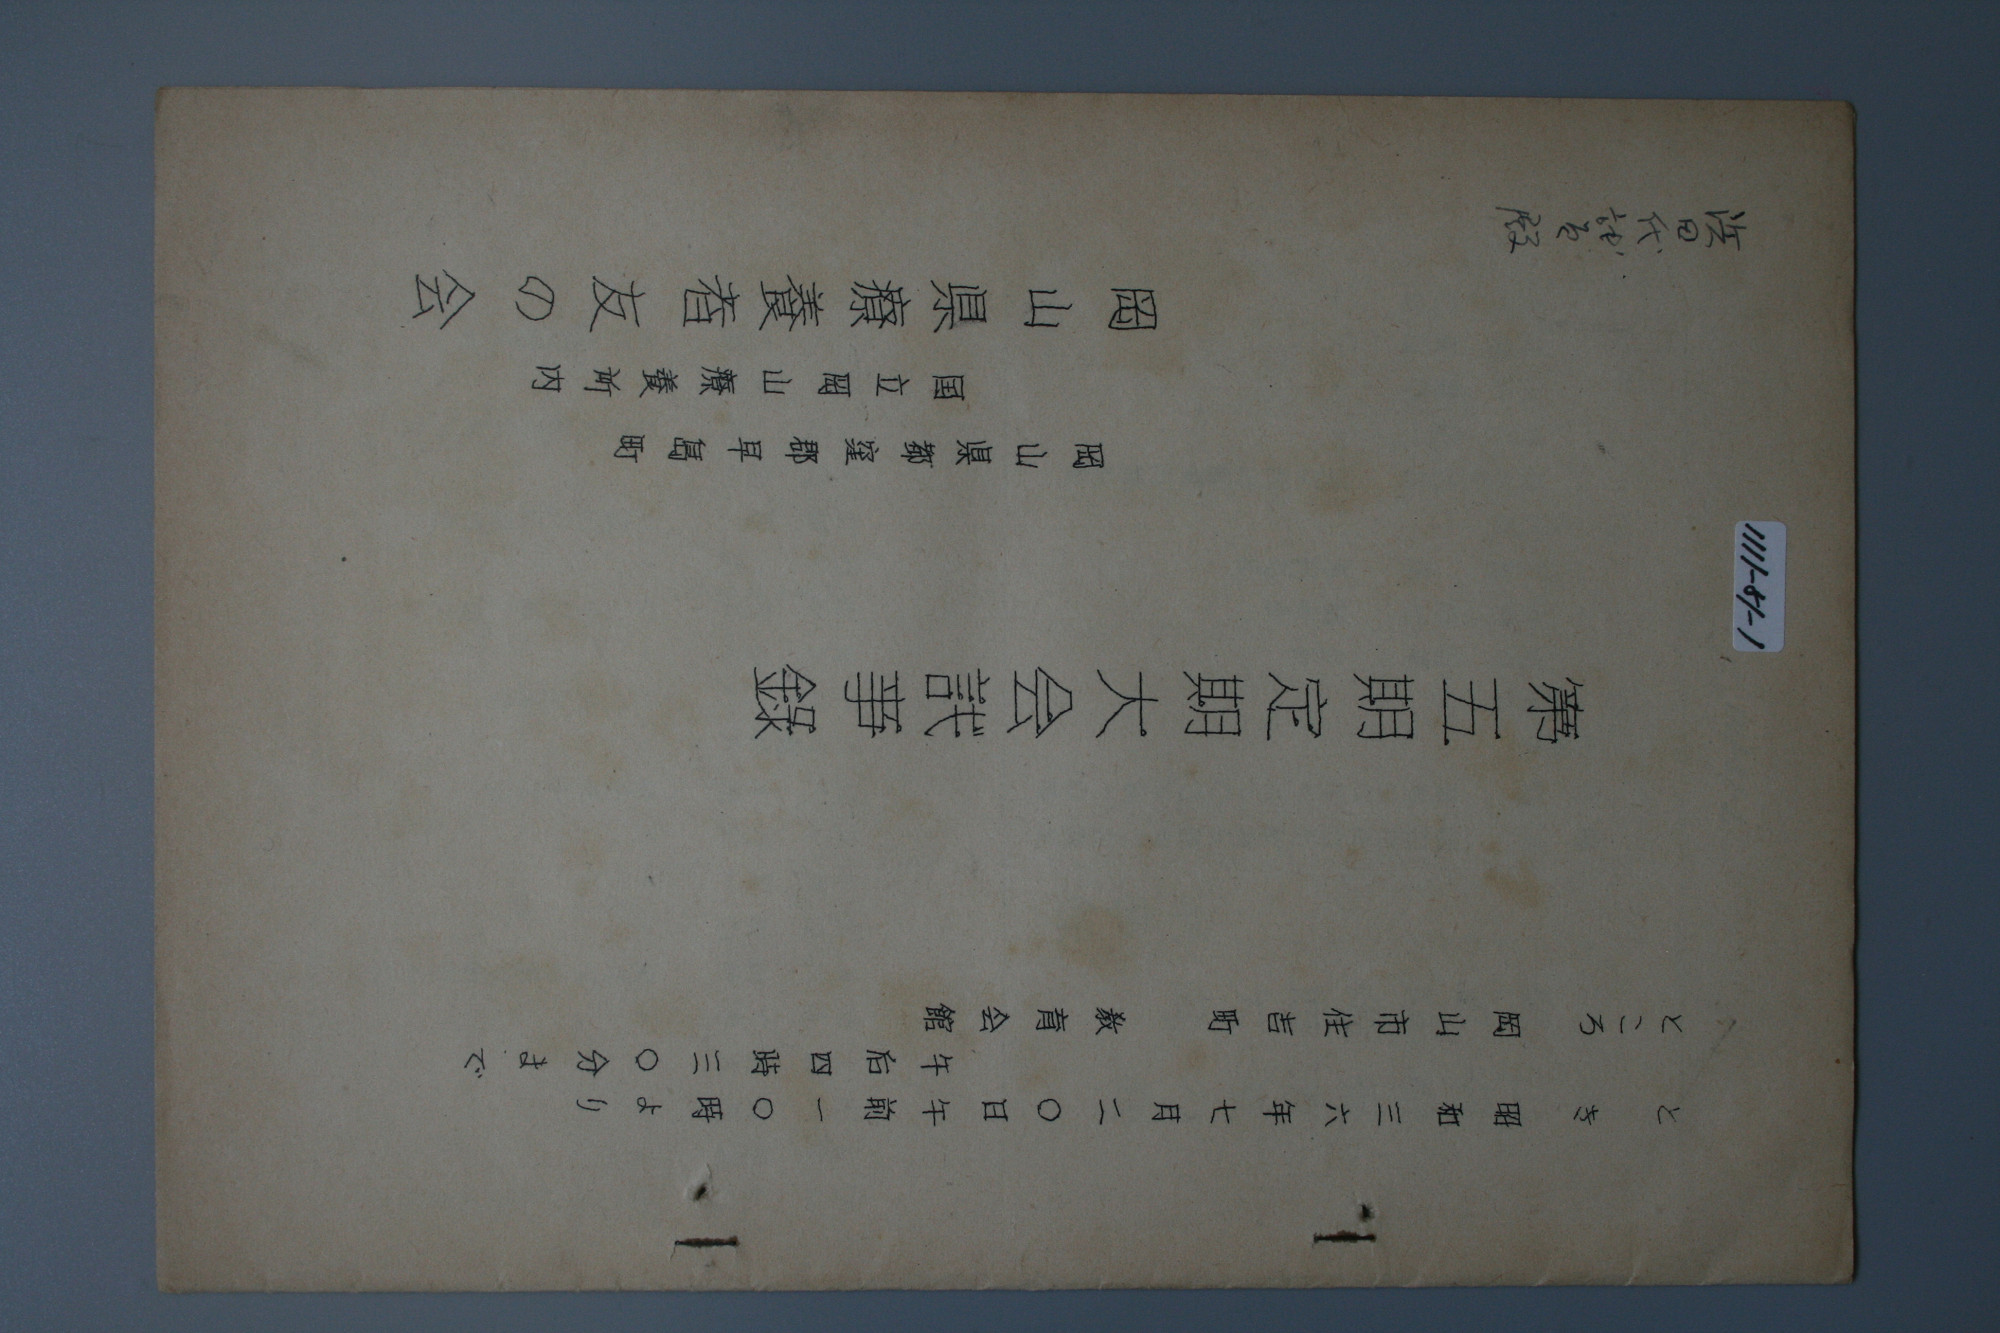 とき 昭和三六年七月二〇日午前一〇時より
午后四時三〇分まで
ところ 岡山市住吉町 教育会館
第五期定期大会議事録
岡山県都窪郡早島町
国立岡山療養所内
岡山県療養者友の会
浜田代議員殿
1111-81-1